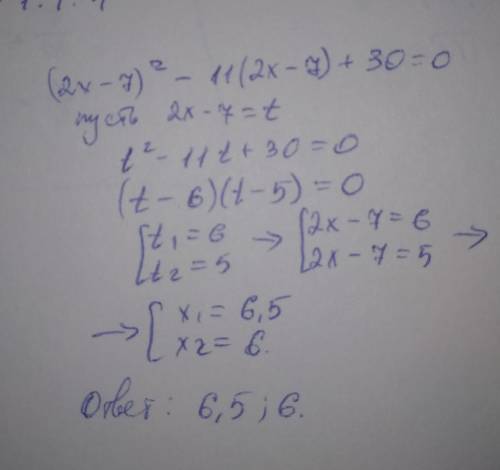 (2x-7)² - 11(2x-7) + 30 = 0
пусть 2x-7=t
t² - 11t + 30 = 0
(t-6)(t-5) = 0
[t₁=6 → [2x-7=6 →
[t₂=5 [2x-7=5
→ [x₁= 6,5
[x₂= 6.
Ответ: 6,5; 6.